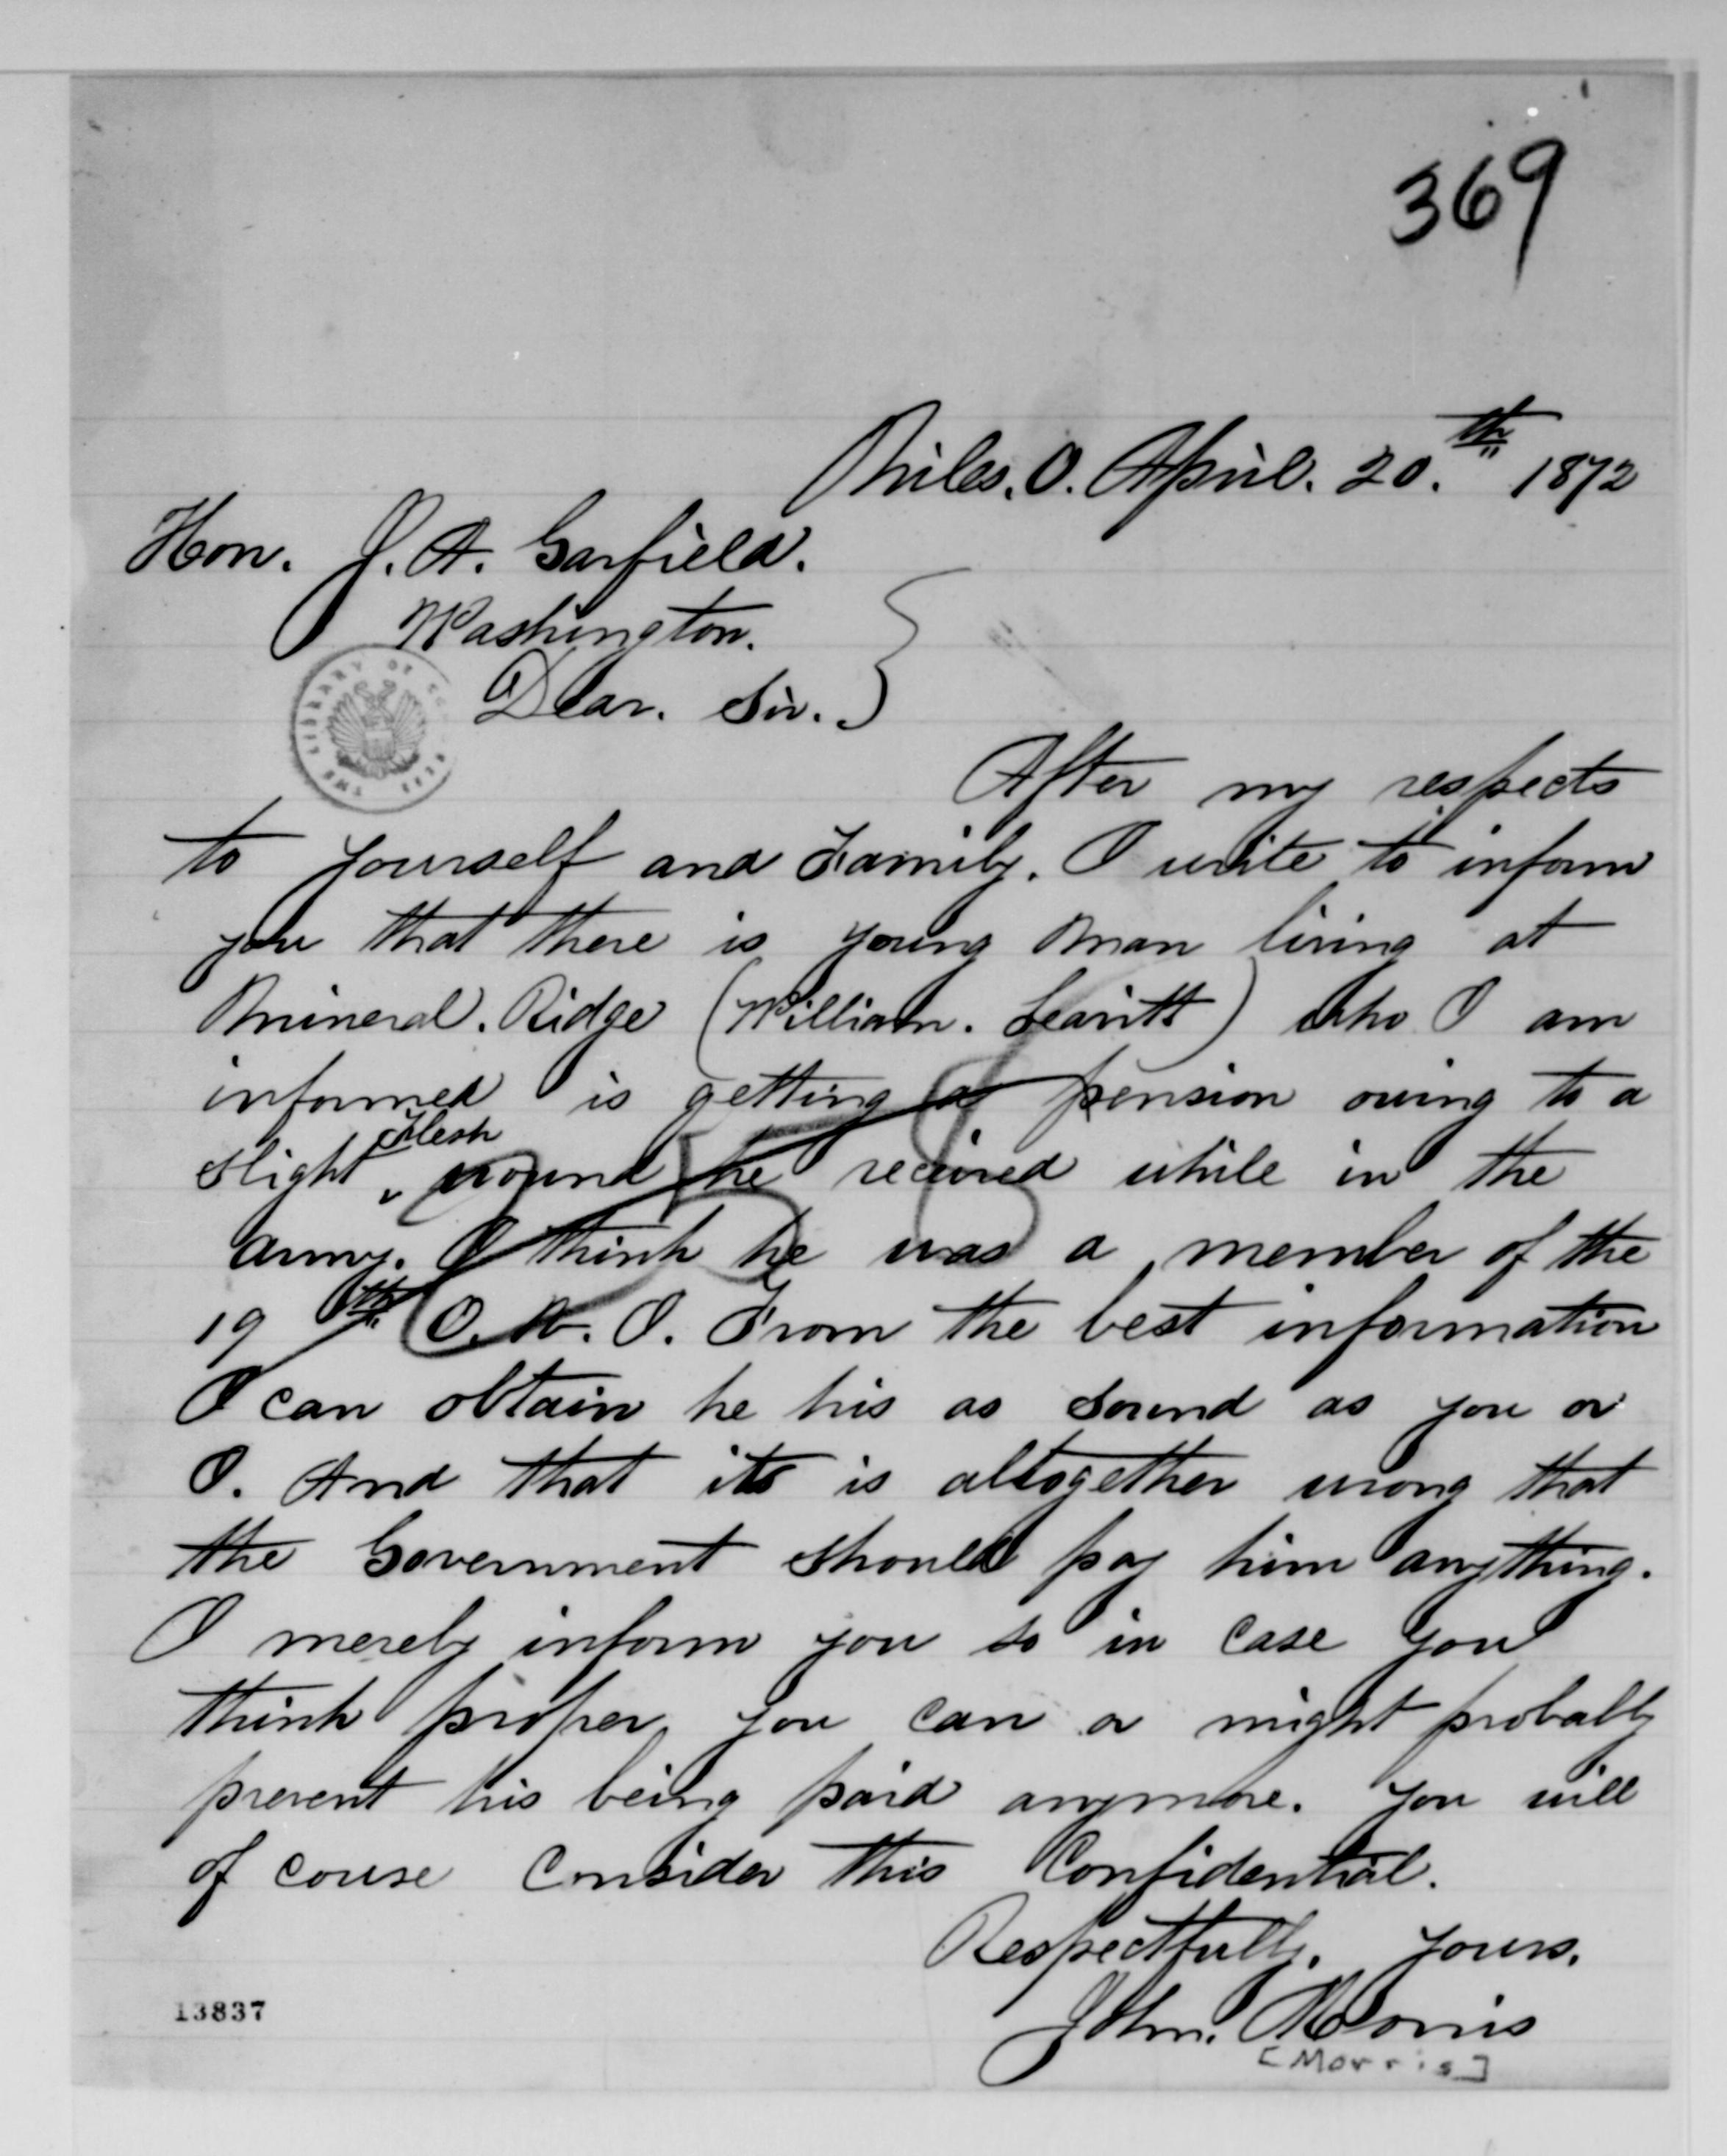 369
Niles. O. April. 20.th 1872
Hon. J. A. Garfield.
Washington.
Dear. Sir.
THE LIBRARY OF CO
After my respects
to yourself and Family. I write to inform
you that there is young man living at
Mineral. Ridge (William. Leavitt) who I am
informed is getting a pension owing to a
Flesh
slight wound he received while in the
army. I think he was a member of the
19th O. V. I. From the best information
I can obtain he his as sound as you or
I. And that its is altogether wrong that
the Government should pay him anything.
I merely inform you so in case you
think proper you can or might probably
prevent his being paid anymore. You will
of couse Consider this Confidential.
Respectfully. Yours.
John. Morris
[Morris]
13837